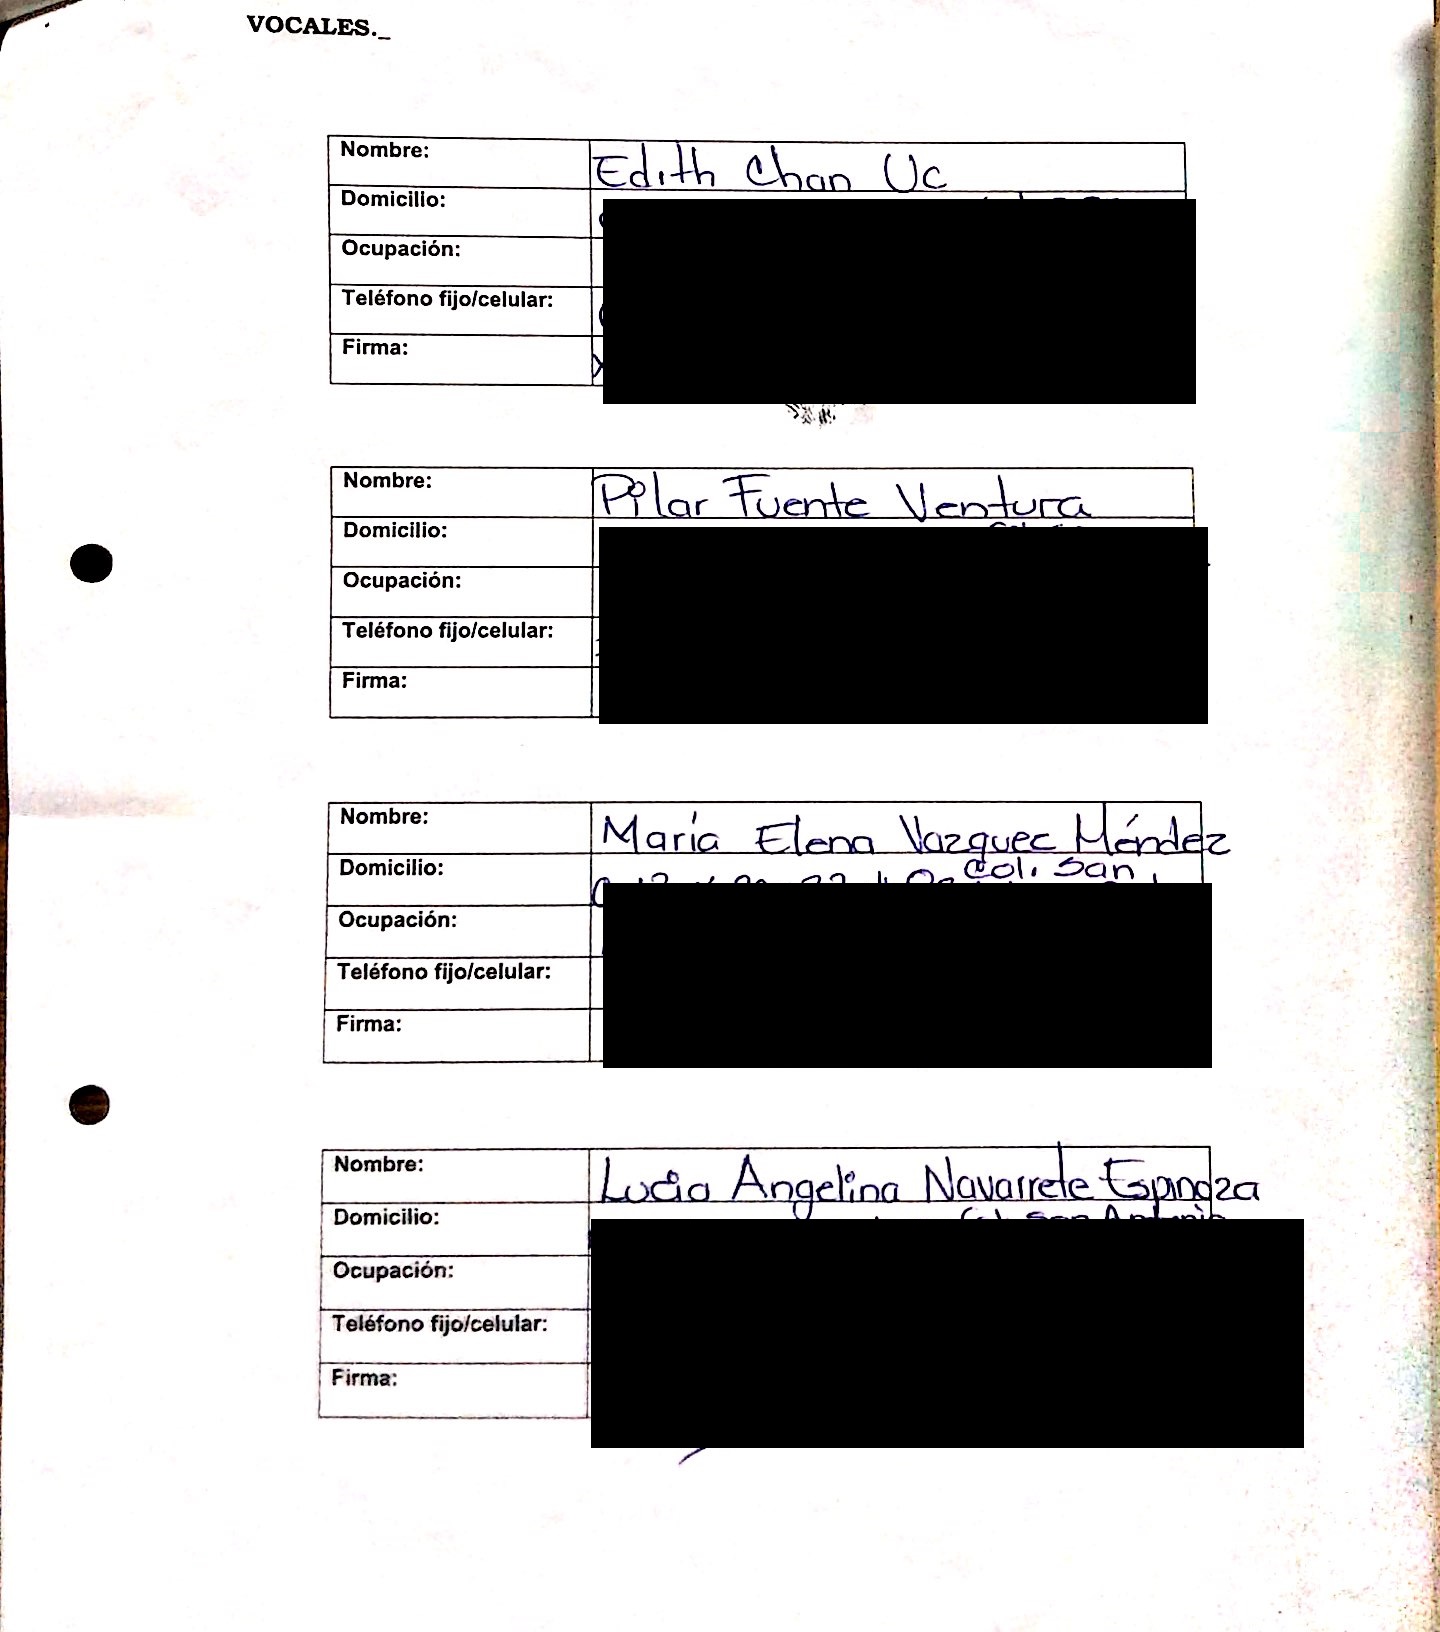 VOCALES._
Nombre: Edith Chan Uc
Domicilio:
Ocupación:
Teléfono fijo/celular:
Firma:
Nombre: Pilar Fuente Ventura
Domicilio:
Ocupación:
Teléfono fijo/celular:
Firma:
Nombre: María Elena Vazquez Méndez
Domicilio: Col. San
Ocupación:
Teléfono fijo/celular:
Firma:
Nombre: Lucia Angelina Navarrete Espinoza
Domicilio:
Ocupación:
Teléfono fijo/celular:
Firma: